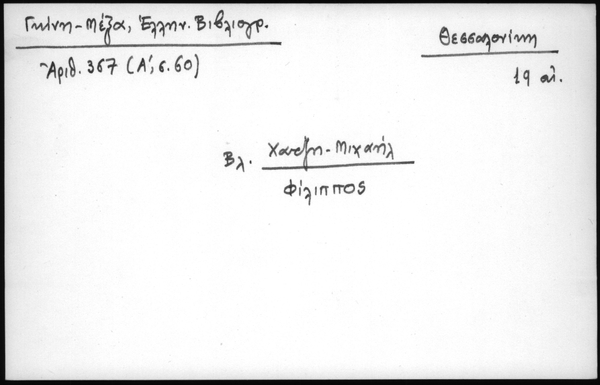 Γκίνη-Μέξα, Ἑλλην. Βιβλιογρ.
Θεσσαλονίκη
Ἀριθ. 367 (Α', σ. 60)
19 αἰ.
Βλ. Χατζῆ-Μιχαήλ
Φίλιππος